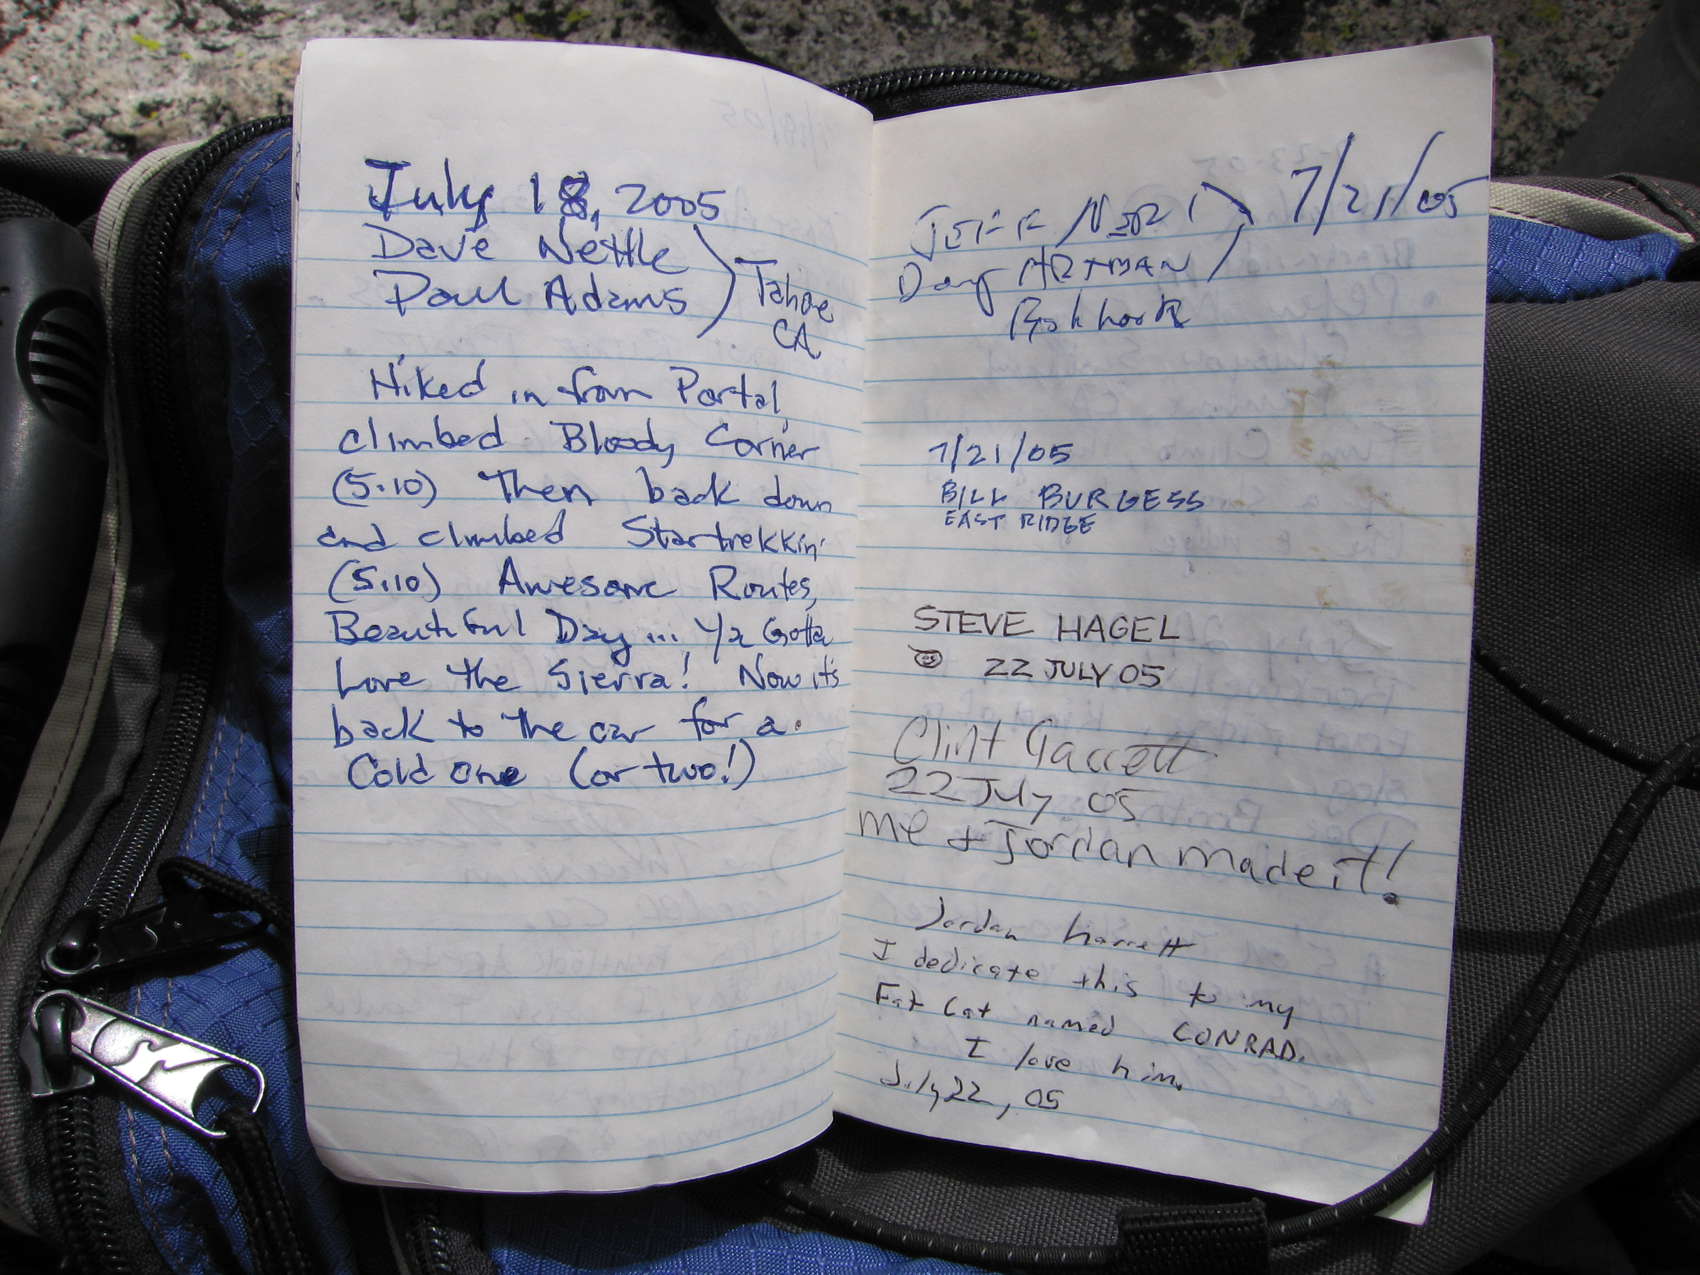 July 18, 2005
Dave Nettle
Paul Adams
Tahoe
CA
Hiked in from Portal,
climbed Bloody Corner
(5.10) Then back down
and climbed Startrekkin'
(5.10) Awesome Routes,
Beautiful Day... Ya Gotta
Love the Sierra! Now it's
back to the car for a
Cold one (or two!)
JEFF
7/21/05
Doug HARTMAN
7/21/05
BILL BURGESS
EAST RIDGE
STEVE HAGEL
22 JULY 05
Clint Garrett
22 July 05
me + Jordan made it!
Jordan Garrett
I dedicate this to my
Fat Cat named CONRAD.
I love him.
July 22, 05